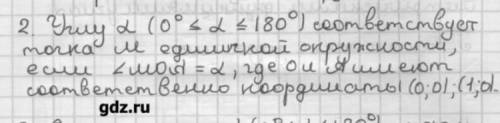 2. Углу α (0° ≤ α ≤ 180°) соответствует
точка М единичной окружности,
если ∠МОА = α, где О и А имеют
соответственно координаты (0;0);(1;0).
gdz.ru